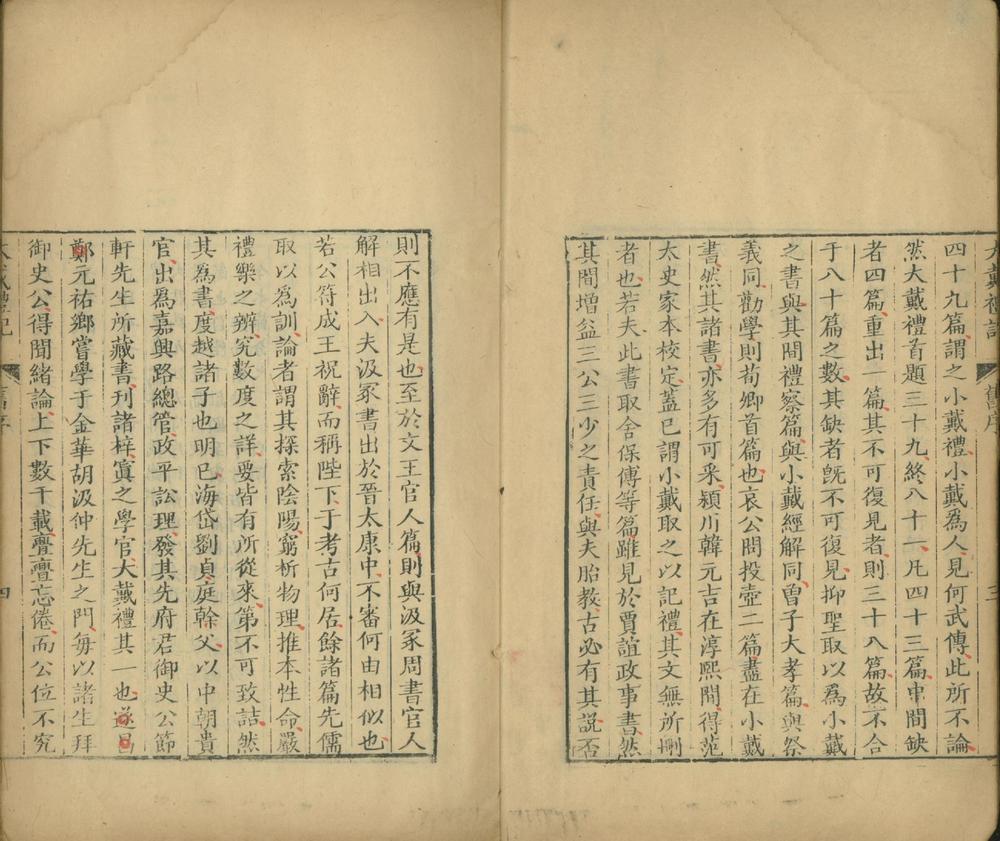 大戴禮記 舊序 三
四十九篇謂之小戴禮小戴為人見何武傳此所不論
然大戴禮首題三十九終八十一凡四十三篇中間缺
者四篇重出一篇其不可復見者則三十八篇故不合
于八十篇之數其缺者旣不可復見抑聖取以為小戴
之書與其間禮察篇與小戴經解同曾子大孝篇與祭
義同勸學則荀卿首篇也哀公問投壺二篇盡在小戴
書然其諸書亦多有可采潁川韓元吉在淳熙間得范
太史家本校定蓋已謂小戴取之以記禮其文無所刪
者也若夫此書取舍保傅等篇雖見於賈誼政事書然
其間增益三公三少之責任與夫胎教古必有其說否
則不應有是也至於文王官人篇則與汲冢周書官人
解相出入夫汲冢書出於晉太康中不審何由相似也
若公符成王祝辭而稱陛下于考古何居餘諸篇先儒
取以為訓論者謂其探索陰陽窮析物理推本性命嚴
禮樂之辨究數度之詳要皆有所從來第不可致詰然
其為書度越諸子也明已海岱劉貞庭榦父以中朝貴
官出為嘉興路總管政平訟理發其先府君御史公節
軒先生所藏書刊諸梓寘之學官大戴禮其一也遂昌
鄭元祐鄉嘗學于金華胡汲仲先生之門每以諸生拜
御史公得聞緒論上下數千載亹亹忘倦而公位不究
大戴禮記 舊序 四